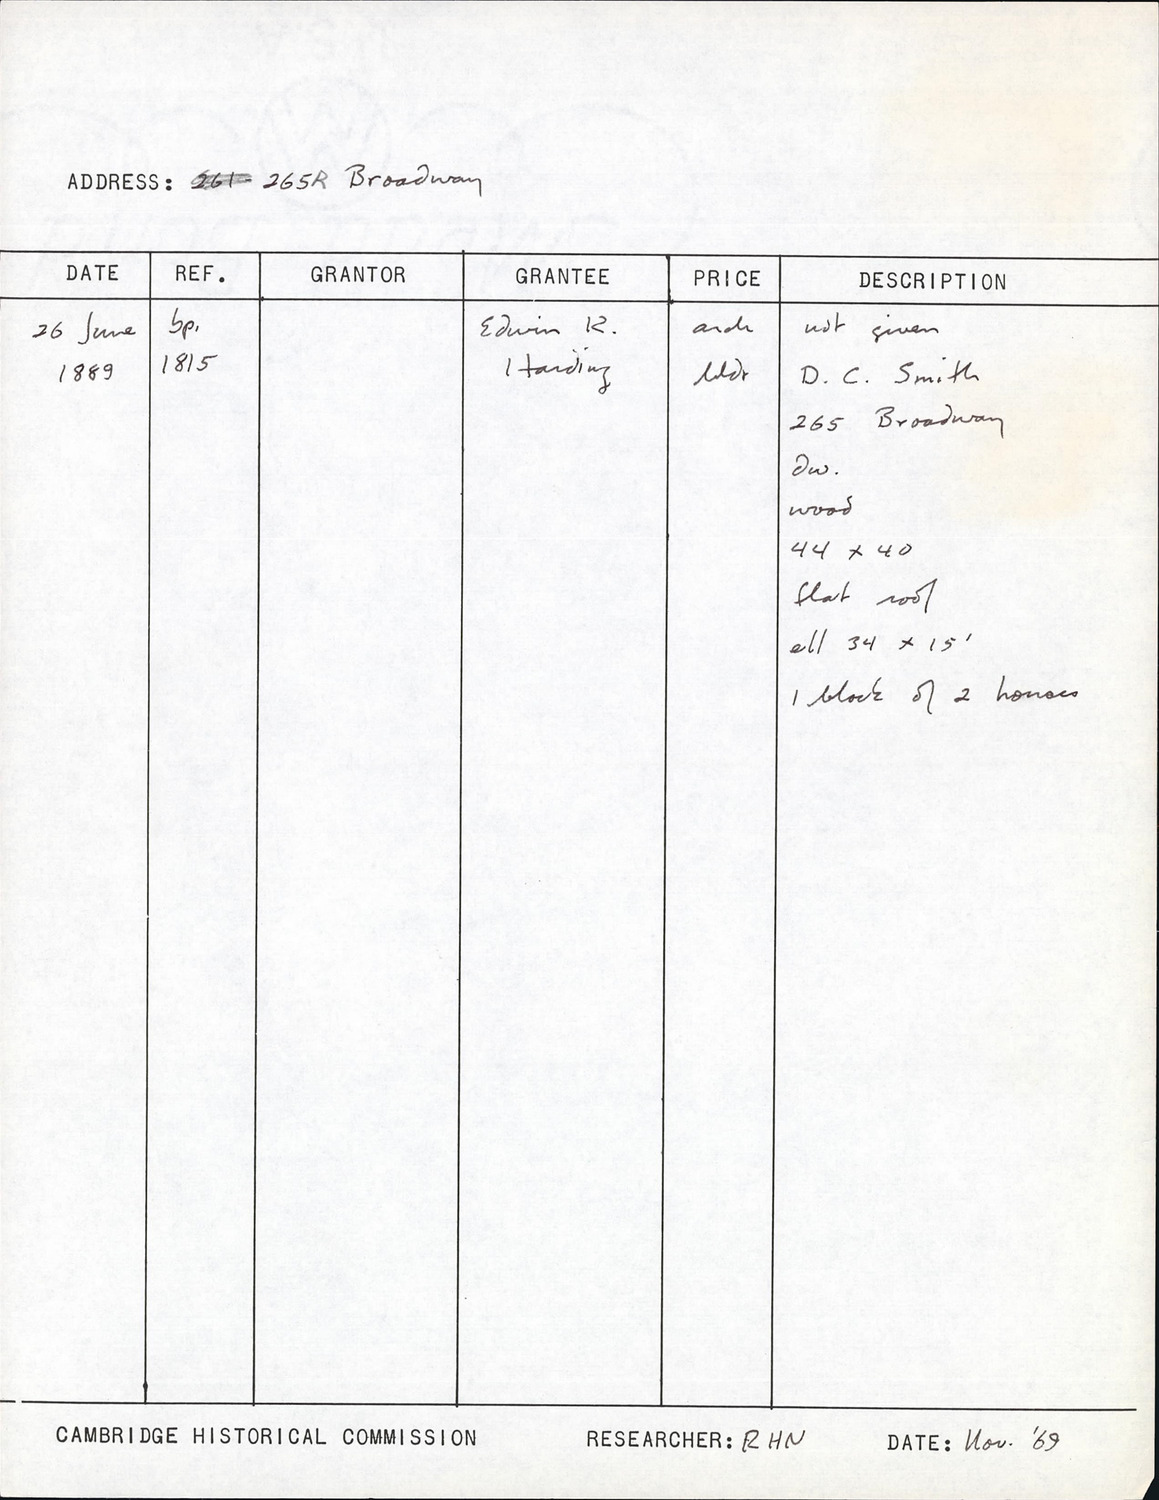 ADDRESS: 261- 265R Broadway
DATE REF. GRANTOR GRANTEE PRICE DESCRIPTION
26 June bp. Edwin R. arch not given
1889 1815 Harding bldr D. C. Smith
265 Broadway
dw.
wood
44 x 40
flat roof
ell 34 x 15'
1 block of 2 houses
CAMBRIDGE HISTORICAL COMMISSION RESEARCHER: RHN DATE: Nov. '69